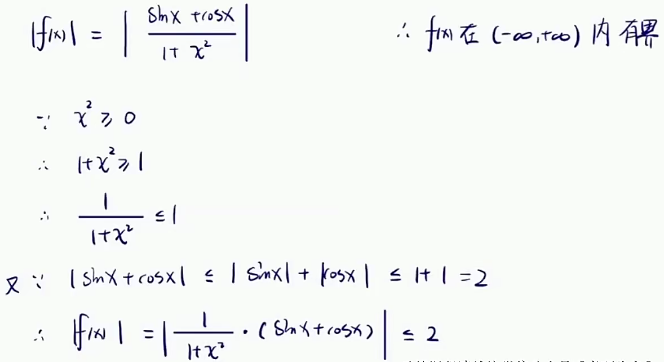 |f(x)| = | (sinx + cosx) / (1 + x²) | ∴ f(x) 在 (-∞,+∞) 内有界
∵ x² ≥ 0
∴ 1+x² ≥ 1
∴ 1 / (1+x²) ≤ 1
又∵ |sinx+cosx| ≤ |sinx| + |cosx| ≤ 1+1 = 2
∴ |f(x)| = | 1 / (1+x²) · (sinx+cosx) | ≤ 2